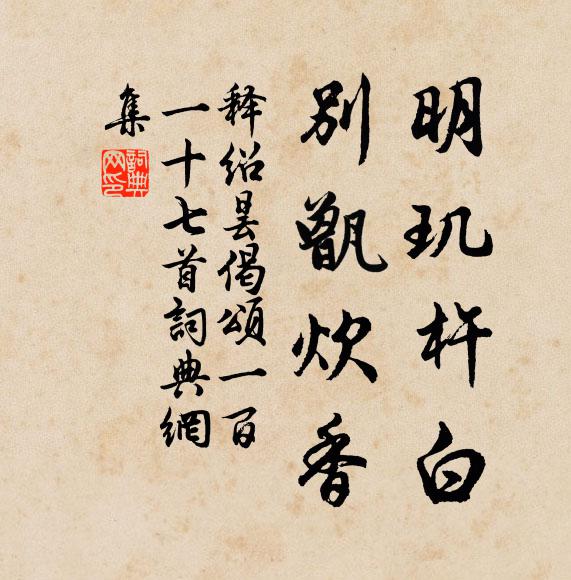 明玑杵白
别甑炊香
释绍昙偈颂一百
一十七首词典网
集
词典网印